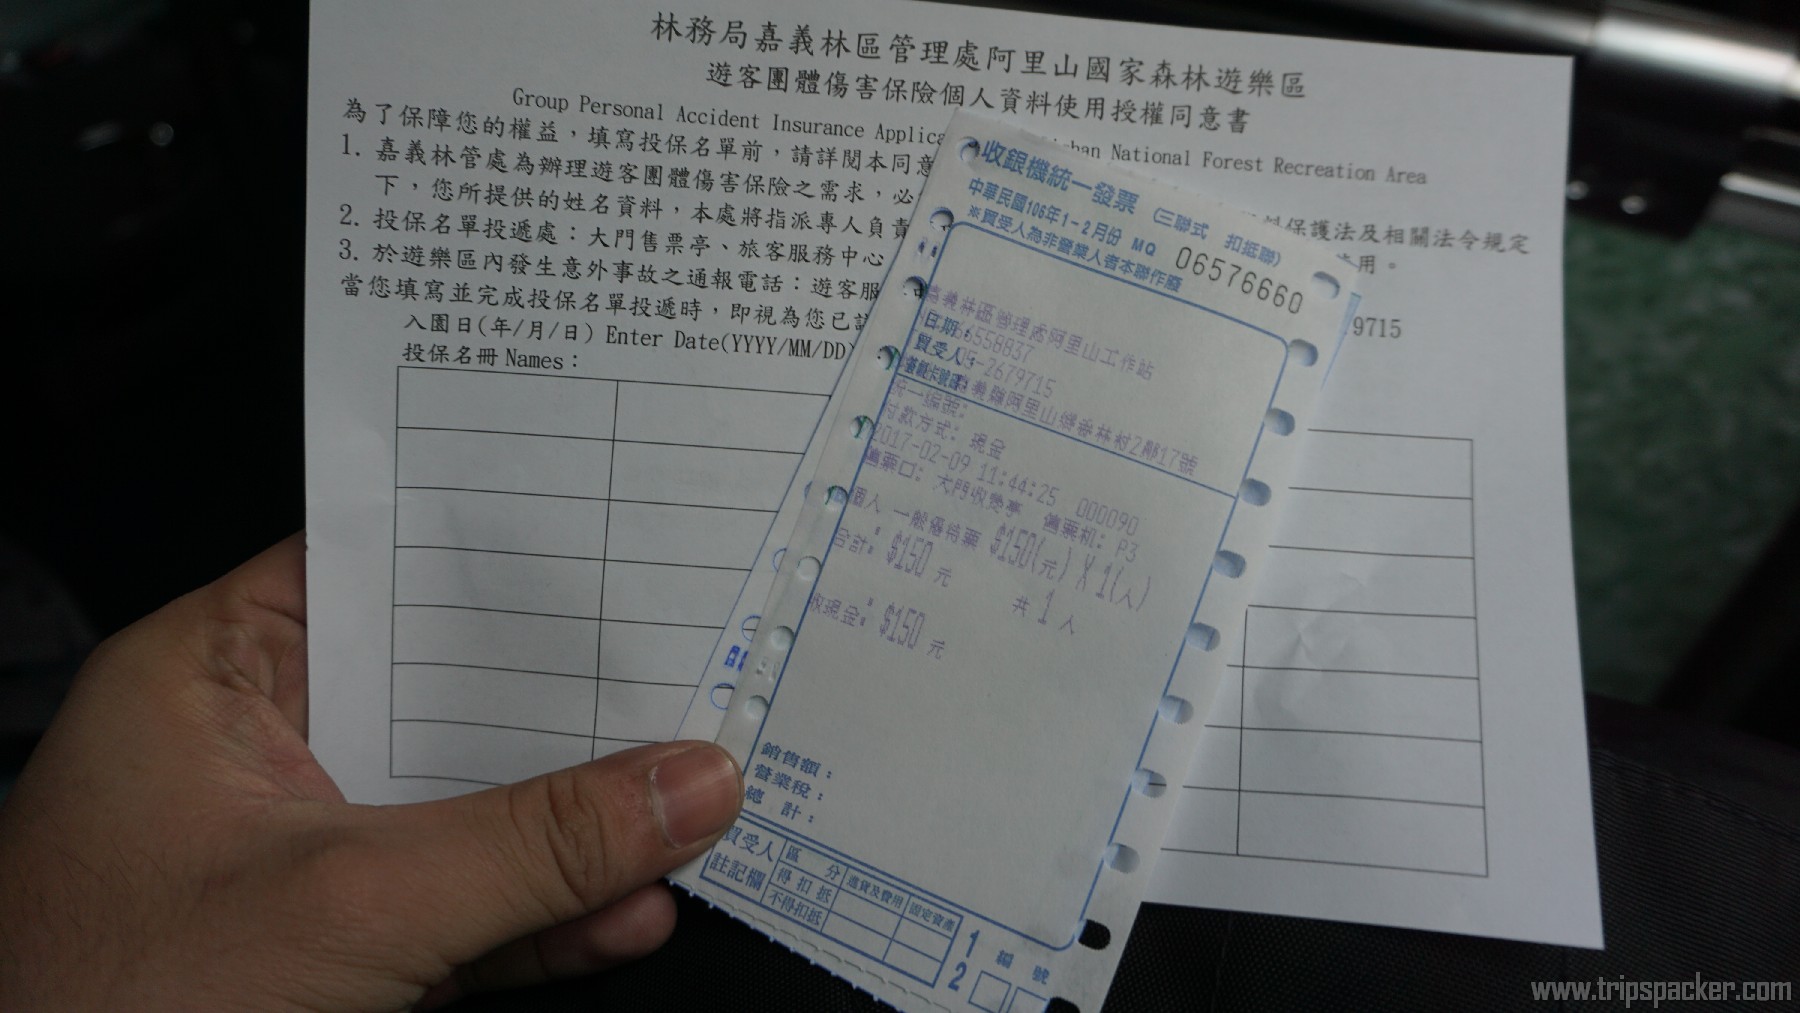 林務局嘉義林區管理處阿里山國家森林遊樂區
遊客團體傷害保險個人資料使用授權同意書
Group Personal Accident Insurance Applica shan National Forest Recreation Area
為了保障您的權益，填寫投保名單前，請詳閱本同意
1. 嘉義林管處為辦理遊客團體傷害保險之需求，必 保護法及相關法令規定
下，您所提供的姓名資料，本處將指派專人負責 用。
2. 投保名單投遞處：大門售票亭、旅客服務中心
3. 於遊樂區內發生意外事故之通報電話：遊客服 9715
當您填寫並完成投保名單投遞時，即視為您已
入園日(年/月/日) Enter Date(YYYY/MM/DD)
投保名冊 Names：
收銀機統一發票 (三聯式 扣抵聯)
中華民國106年1-2月份 MQ 06576660
※買受人為非營業人者本聯作廢
嘉義林區管理處阿里山工作站
日期：
66558837
買受人：
05-2679715
統一編號：
付款方式：現金
2017-02-09 11:44:25 000090
售票口：大門收費亭 售票机：P3
個人 一般優待票 $150(元) X 1(人)
合計：$150 元 共 1 人
收現金：$150 元
銷售額：
營業稅：
總 計：
買受人
註記欄
區 分
進貨及費用
固定資產
得扣抵
不得扣抵
1 編 號
2
www.tripspacker.com